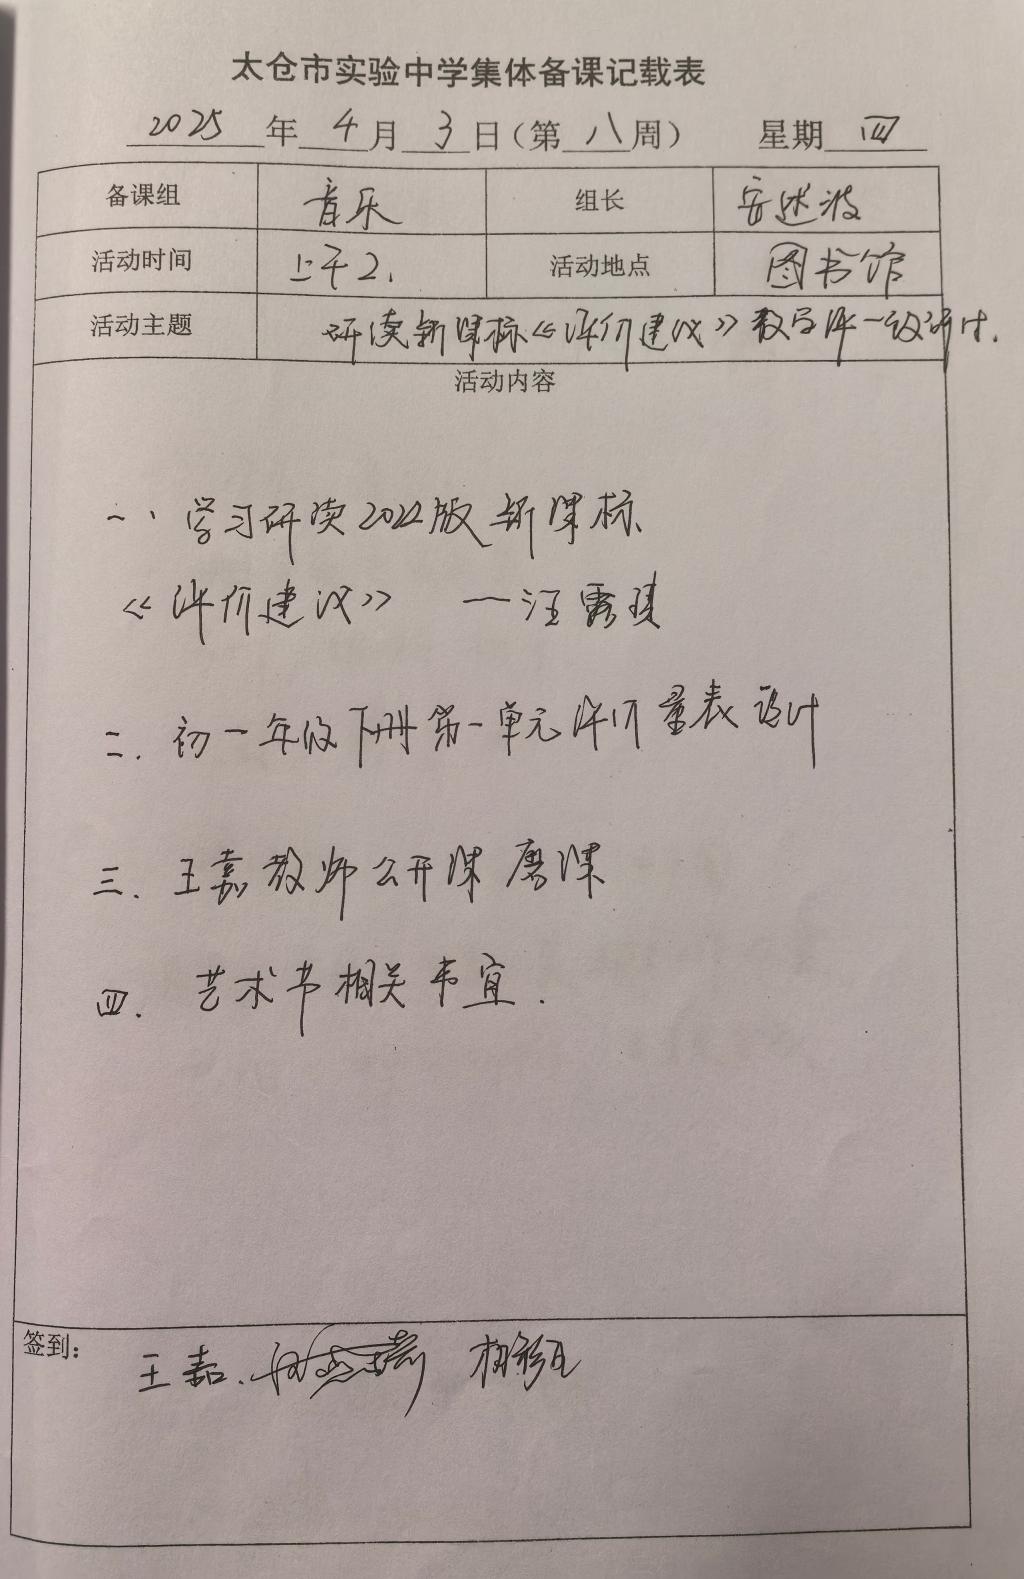 太仓市实验中学集体备课记载表
2025 年 4 月 3 日（第 八 周） 星期 四
备课组 音乐 组长
活动时间 上午2. 活动地点 图书馆
活动主题 研读新课标《评价建议》教学评一致设计.
活动内容
一、学习研读2022版新课标
《评价建议》 —汪露琪
二. 初一年级下册第一单元评价量表设计
三. 王嘉教师公开课磨课
四. 艺术节相关事宜.
签到: 王嘉.